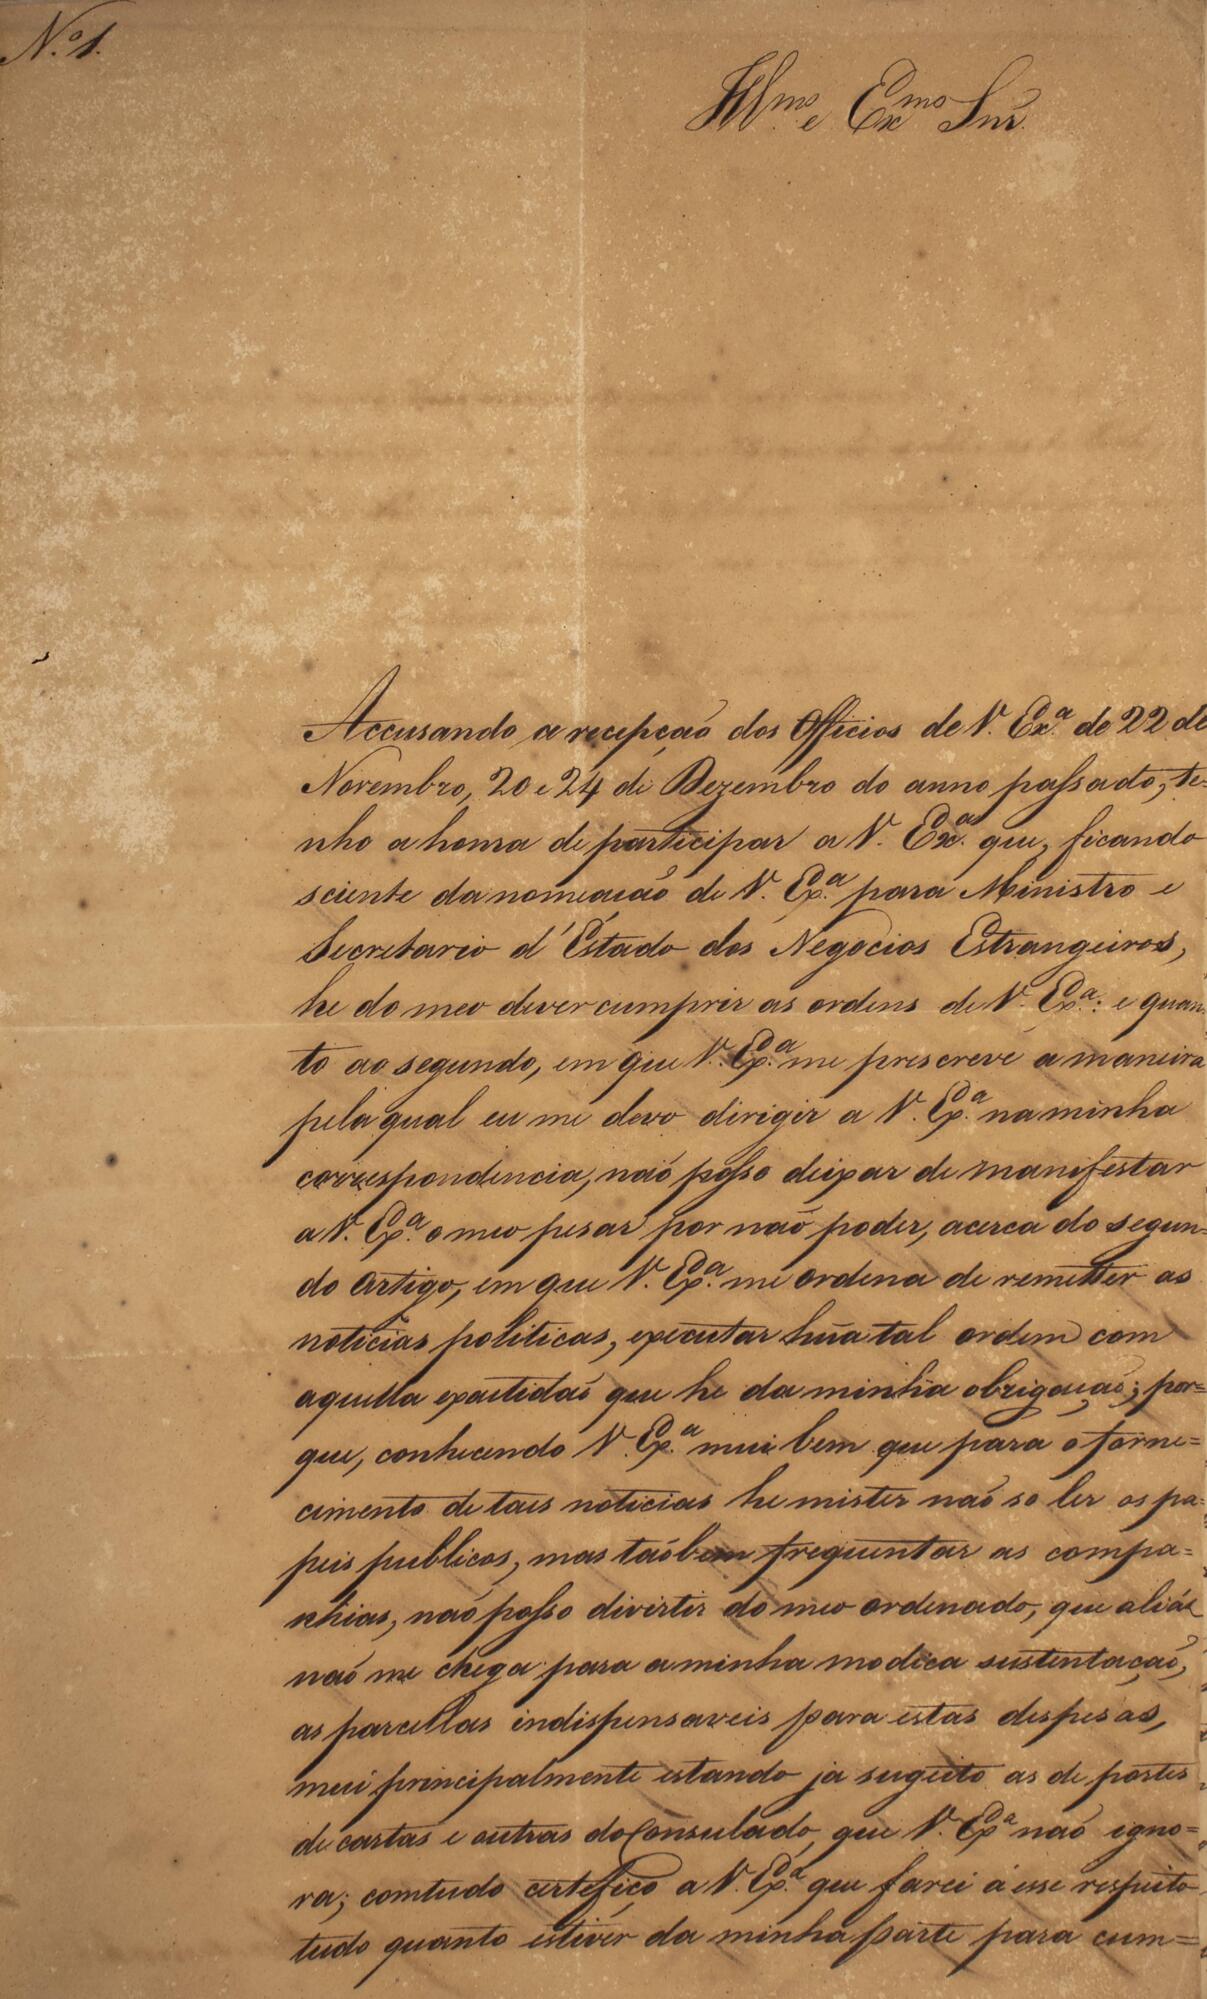 N.º 1.
Ill.mo e Ex.mo Snr.
Accusando a recepçaõ dos Officios de V. Ex.ª de 22 de
Novembro, 20 e 24 de Dezembro do anno passado, te-
nho a honra de participar a V. Ex.ª que, ficando
sciente da nomeaçaõ de V. Ex.ª para Ministro e
Secretario d'Estado dos Negocios Estrangeiros,
he do meo dever cumprir as ordens de V. Ex.ª: e quan-
to ao segundo, em que V. Ex.ª me prescreve a maneira
pela qual eu me devo dirigir a V. Ex.ª na minha
correspondencia, naõ posso deixar de manifestar
a V. Ex.ª o meo pesar por naõ poder, acerca do segun-
do artigo, em que V. Ex.ª me ordena de remetter as
noticias politicas, executar hũa tal ordem com
aquella exactidaõ que he da minha obrigaçaõ; por=
que, conhecendo V. Ex.ª mui bem que para o forne=
cimento de taes noticias he mister naõ so ler os pa=
peis publicos, mas taõbem frequentar as compa=
nhias, naõ posso divertir do meo ordenado, que aliás
naõ me chega para a minha modica sustentaçaõ,
as parcellas indispensaveis para estas despesas,
mui principalmente estando ja sugeito as de portes
de cartas e outras do Consulado, que V. Ex.ª naõ igno=
ra; comtudo certefico a V. Ex.ª que farei á esse respeito
tudo quanto estiver da minha parte para cum=